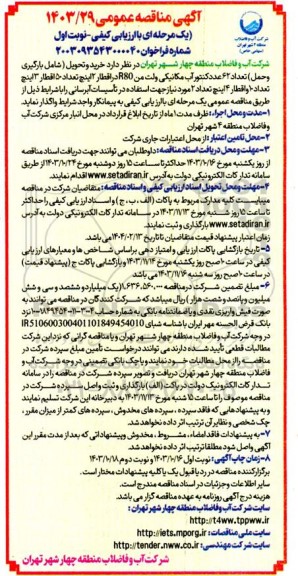 آگهی مناقصه عمومی ۱۴۰۳/۲۹
(یک مرحله ای با ارزیابی کیفی - نوبت اول
شماره فراخوان ۲۰۰۳۰۹۵۴۳۰۰۰۰۴۰)
شرکت آب و فاضلاب
منطقه ۴ شهر تهران
(سهامی خاص)
شرکت آب و فاضلاب منطقه چهار شهر تهران در نظر دارد خرید و تحویل (شامل بارگیری
وحمل) تعداد ۶۲ عدد کنتور آب مکانیکی ولت من R80 در اقطار ۲ اینچ تعداد ۵۰ اقطار ۳ اینچ
تعداد ۶ و اقطار ۴ اینچ تعداد ۶ مورد نیاز جهت استفاده در تأسیسات آبرسانی را با شرایط ذیل از
طریق مناقصه عمومی یک مرحله ای با ارزیابی کیفی به پیمانکار واجد شرایط واگذار نماید.
۱- مدت و محل اجراء: ظرف مدت ۱ ماه از تاریخ ابلاغ قرارداد در محل انبار مرکزی شرکت آب
و فاضلاب منطقه ۴ شهر تهران
۲- محل تامین اعتبار: از محل اعتبارات جاری شرکت
۳- مهلت و محل دریافت اسناد مناقصه: داوطلبان می توانند جهت دریافت اسناد مناقصه
از روز یکشنبه مورخ ۱۴۰۳/۱۰/۱۶ حداکثر تا ساعت ۱۵ روز دوشنبه مورخ ۱۴۰۳/۱۰/۲۴ از طریق
سامانه تدارکات الکترونیکی دولت به آدرس www.setadiran.ir اقدام نمایند.
۴- مهلت و محل تحویل اسناد ارزیابی کیفی و اسناد مناقصه: متقاضیان شرکت در مناقصه
میبایست کلیه مدارک مربوط به پاکات (الف، ب، ج) و اسناد ارزیابی کیفی را حداکثر
تا ساعت ۱۵ روز شنبه مورخ ۱۴۰۳/۱۱/۱۳ در سامانه تدارکات الکترونیکی دولت به آدرس
www.setadiran.ir بارگذاری و ثبت نمایند.
زمان اعتبار پیشنهاد قیمت متقاضیان تا تاریخ ۱۴۰۴/۰۲/۱۳ می باشد.
۵- تاریخ بازگشایی پاکات ارزیابی و امتیاز دهی براساس شاخص ها و معیارهای ارزیابی
کیفی در ساعت ۱۰ صبح روز یکشنبه مورخ ۱۴۰۳/۱۱/۱۴ و بازگشایی پاکات ج (پیشنهاد قیمت)
در ساعت ۱۰ صبح روز سه شنبه ۱۴۰۳/۱۱/۱۶ می باشد
۶- مبلغ تضمین شرکت در مناقصه ۱.۶۳۶.۵۶۰.۰۰۰ (یک میلیارد و ششصد و سی و شش
میلیون و پانصد و شصت هزار) ریال میباشد که شرکت کنندگان در مناقصه می توانند به
صورت فیش واریزی نقدی و یا ضمانتنامه بانکی به شماره حساب ۱۰۰۱۸۴۹۴۵۴۰۱۱۰۳۰۰۴ نزد
بانک قرض الحسنه مهر ایران با شناسه شبای IR510600300401101849454010
در وجه شرکت آب و فاضلاب منطقه چهار شهر تهران و یا مناقصه گرانی که نزد این شرکت
مطالبات قطعی تأیید شده دارند می توانند درخواست تأمین مبلغ سپرده شرکت در
مناقصه را از محل مطالبات خود نمایند و یا چک بانکی تضمینی در وجه شرکت آب و
فاضلاب منطقه چهار شهر تهران دریافت و تصویر سپرده شرکت در مناقصه را در سامانه
تدارکات الکترونیک دولت در پاکت (الف) بارگذاری و ثبت و اصل سپرده شرکت در
مناقصه موصوف را تا ساعت ۱۵ شنبه مورخ ۱۴۰۳/۱۱/۱۳ به دبیرخانه این شرکت تسلیم نمایند
و به پیشنهادهایی که فاقد سپرده، سپرده های مخدوش، سپرده های کمتر از میزان مقرر،
چک شخصی و نظایر آن ترتیب اثر داده نخواهد شد.
۷- به پیشنهادات فاقد امضاء، مشروط، مخدوش و پیشنهاداتی که بعد از مدت مقرر این
آگهی واصل شود مطلقا ترتیب اثر داده نخواهد شد.
۸- زمان چاپ آگهی: نوبت اول ۱۴۰۳/۱۰/۱۶ و نوبت دوم ۱۴۰۳/۱۰/۱۸
برگزارکننده مناقصه در رد یا قبول یک یا کلیه پیشنهادات مختار است.
سایر اطلاعات و جزئیات در اسناد مناقصه مندرج است.
هزینه درج آگهی روزنامه به عهده مناقصه گزار می باشد.
سایت شرکت آب و فاضلاب منطقه چهار شهر تهران:
http://t4ww.tpww.ir
سایت ملی مناقصات: http://iets.mporg.ir
سایت شرکت مهندسی: http://tender.nww.co.ir
شرکت آب و فاضلاب منطقه چهار شهر تهران